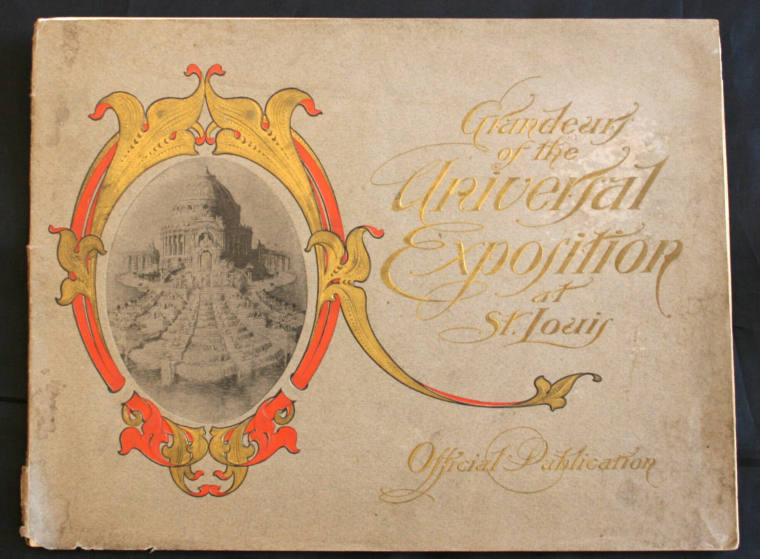 Grandeurs
of the
Universal
Exposition
at
St. Louis
Official Publication